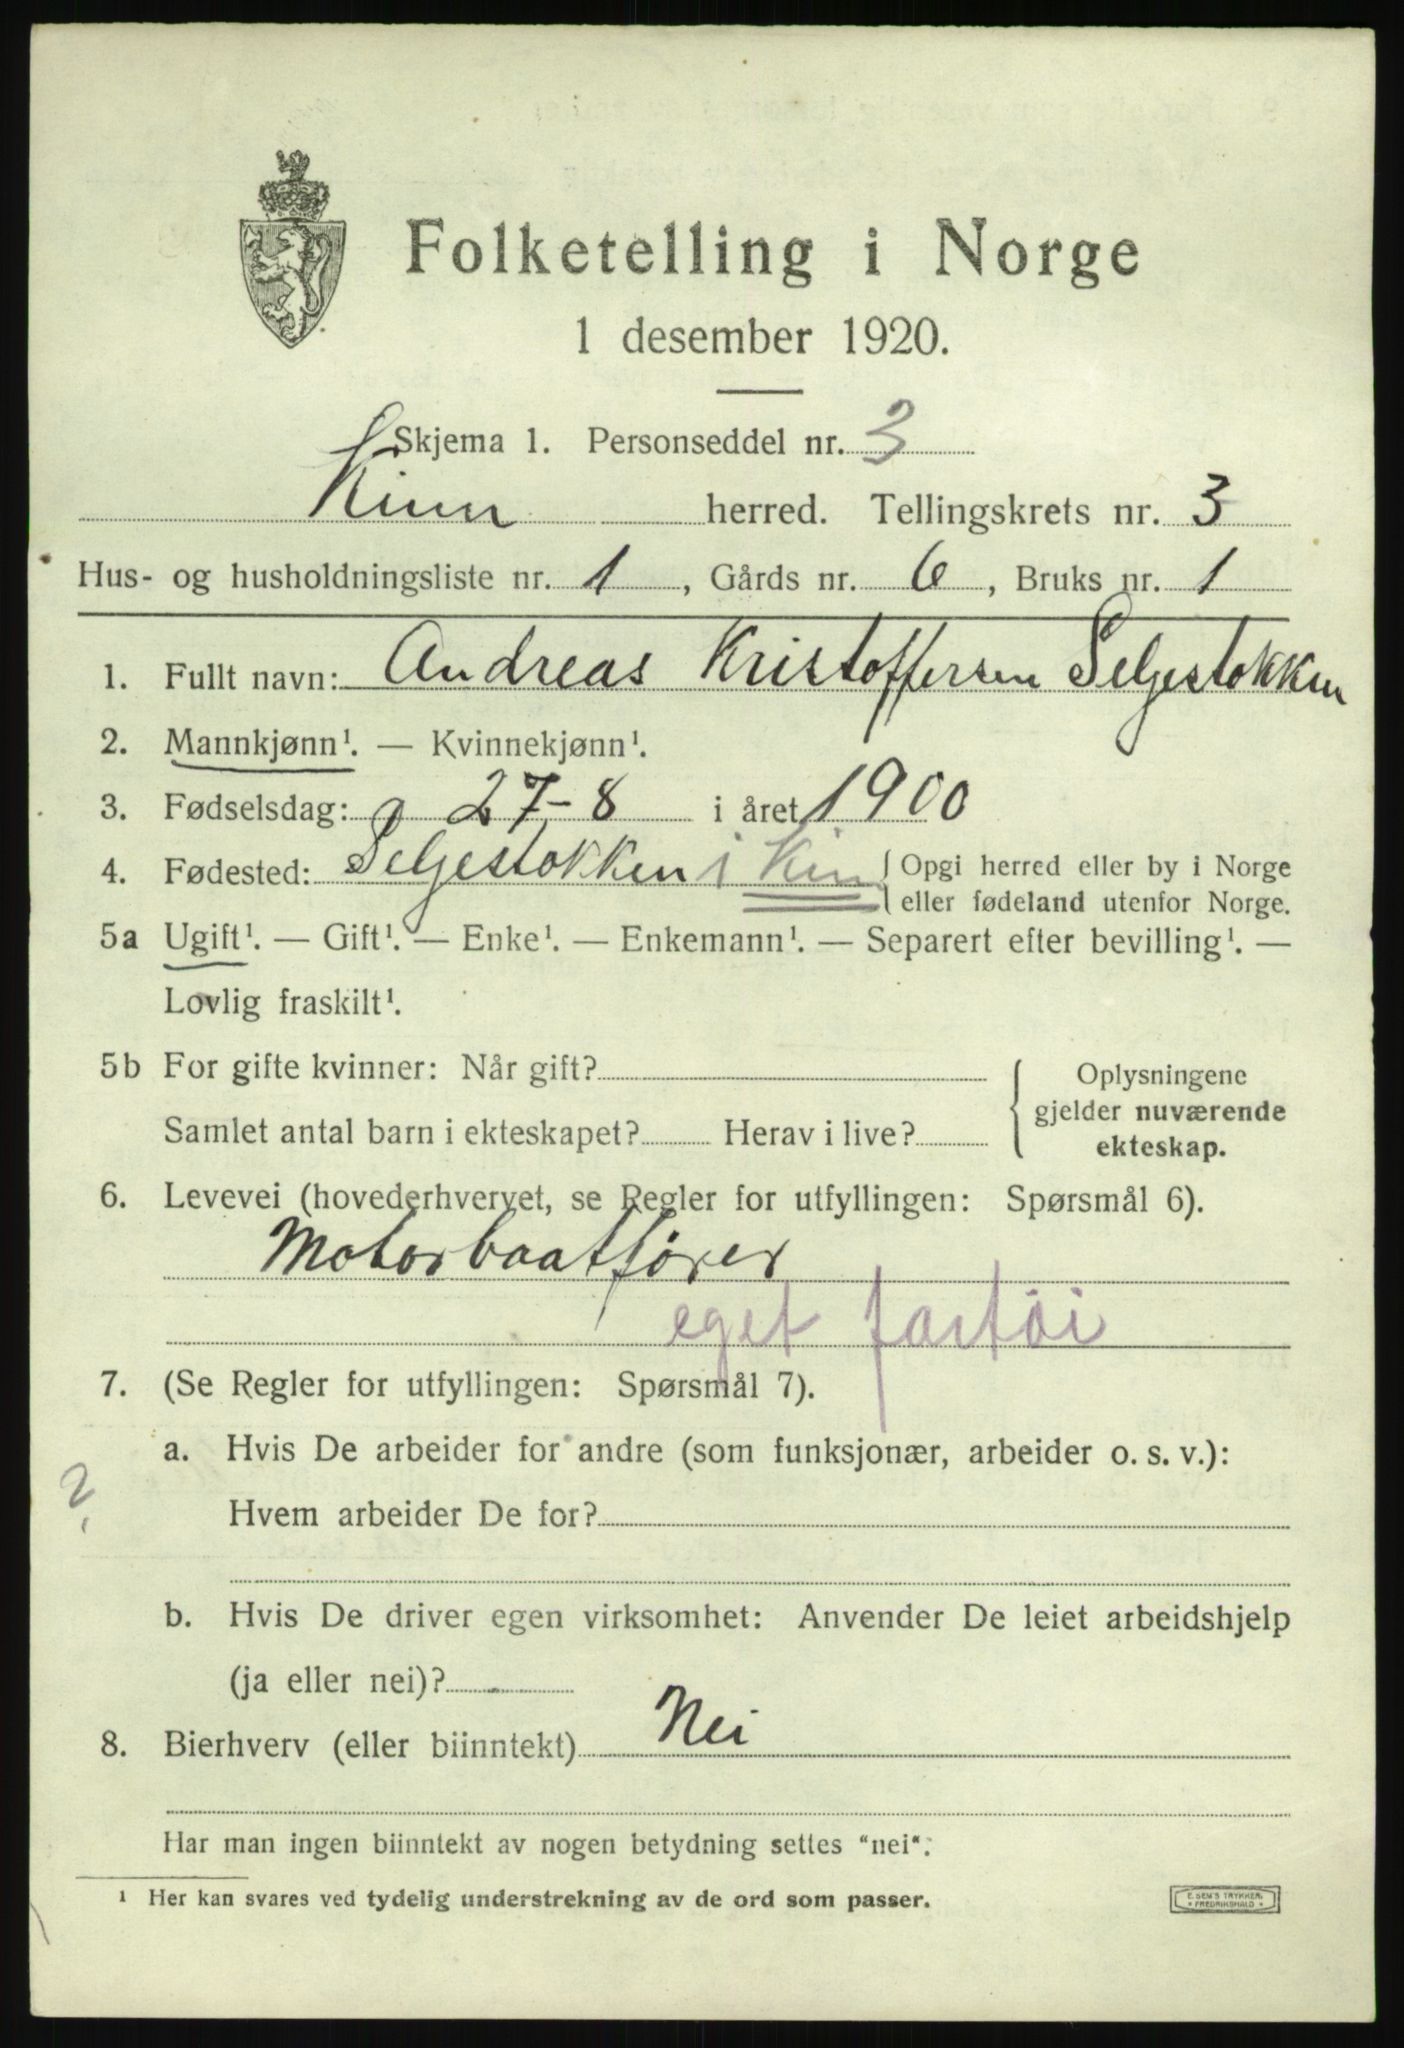 Folketelling i Norge
1 desember 1920.
Skjema 1. Personseddel nr. 3
Kinn herred. Tellingskrets nr. 3
Hus- og husholdningsliste nr. 1, Gårds nr. 6, Bruks nr. 1
1. Fullt navn: Andreas Kristoffersen Seljestokken
2. Mannkjønn¹. — Kvinnekjønn¹.
3. Fødselsdag: 27-8 i året 1900
4. Fødested: Seljestokken i Kin { Opgi herred eller by i Norge
eller fødeland utenfor Norge.
5a Ugift¹. — Gift¹. — Enke¹. — Enkemann¹. — Separert efter bevilling¹. —
Lovlig fraskilt¹.
5b For gifte kvinner: Når gift? { Oplysningene
gjelder nuværende
Samlet antal barn i ekteskapet? Herav i live?
ekteskap.
6. Levevei (hovederhvervet, se Regler for utfyllingen: Spørsmål 6).
Motorbaatfører
eget fartøi
7. (Se Regler for utfyllingen: Spørsmål 7).
a. Hvis De arbeider for andre (som funksjonær, arbeider o. s. v.):
?
Hvem arbeider De for?
b. Hvis De driver egen virksomhet: Anvender De leiet arbeidshjelp
(ja eller nei)?
8. Bierhverv (eller biinntekt) Nei
Har man ingen biinntekt av nogen betydning settes "nei".
¹ Her kan svares ved tydelig understrekning av de ord som passer.
E. SEM'S TRYKKERI
* FREDRIKSHALD *